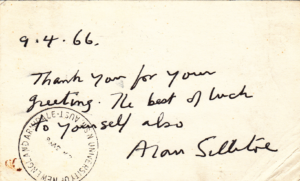 9.4.66.
Thank you for your
greeting. The best of luck
to yourself also
Alan Sillitoe
UNIVERSITY OF NEW ENGLAND ARMIDALE